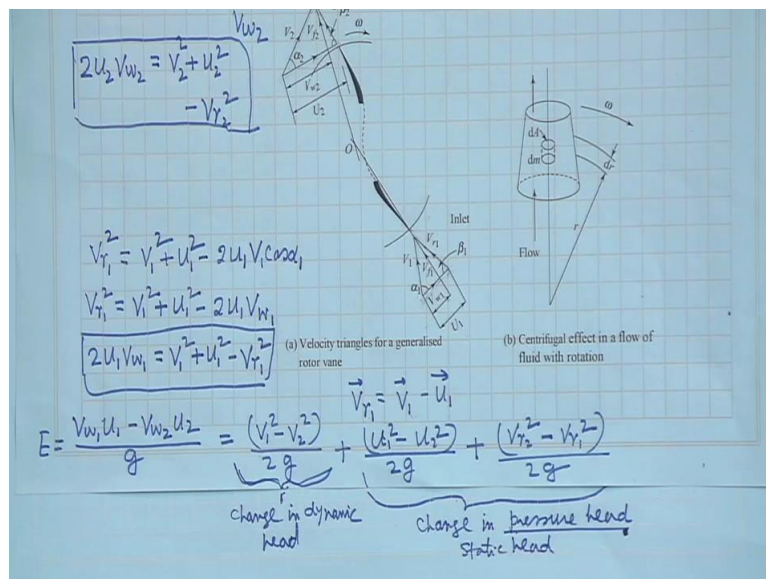 V_{w_2}
2U_2 V_{w_2} = V_2^2 + U_2^2
- V_{r_2}^2
V_2
V_{f2}
β_2
ω
α_2
V_{w2}
U_2
O
ω
dA
dm
dr
r
Flow
Inlet
V_{r1}
β_1
V_1
V_{f1}
α_1
V_{w1}
U_1
V_{r_1}^2 = V_1^2 + U_1^2 - 2U_1 V_1 cosα_1
V_{r_1}^2 = V_1^2 + U_1^2 - 2U_1 V_{w_1}
2U_1 V_{w_1} = V_1^2 + U_1^2 - V_{r_1}^2
(a) Velocity triangles for a generalised
rotor vane
(b) Centrifugal effect in a flow of
fluid with rotation
\vec{V}_{r_1} = \vec{V}_1 - \vec{U}_1
E = \frac{V_{w_1} U_1 - V_{w_2} U_2}{g} = \frac{(V_1^2 - V_2^2)}{2g} + \frac{(U_1^2 - U_2^2)}{2g} + \frac{(V_{r_2}^2 - V_{r_1}^2)}{2g}
change in dynamic
head
change in pressure head
static head